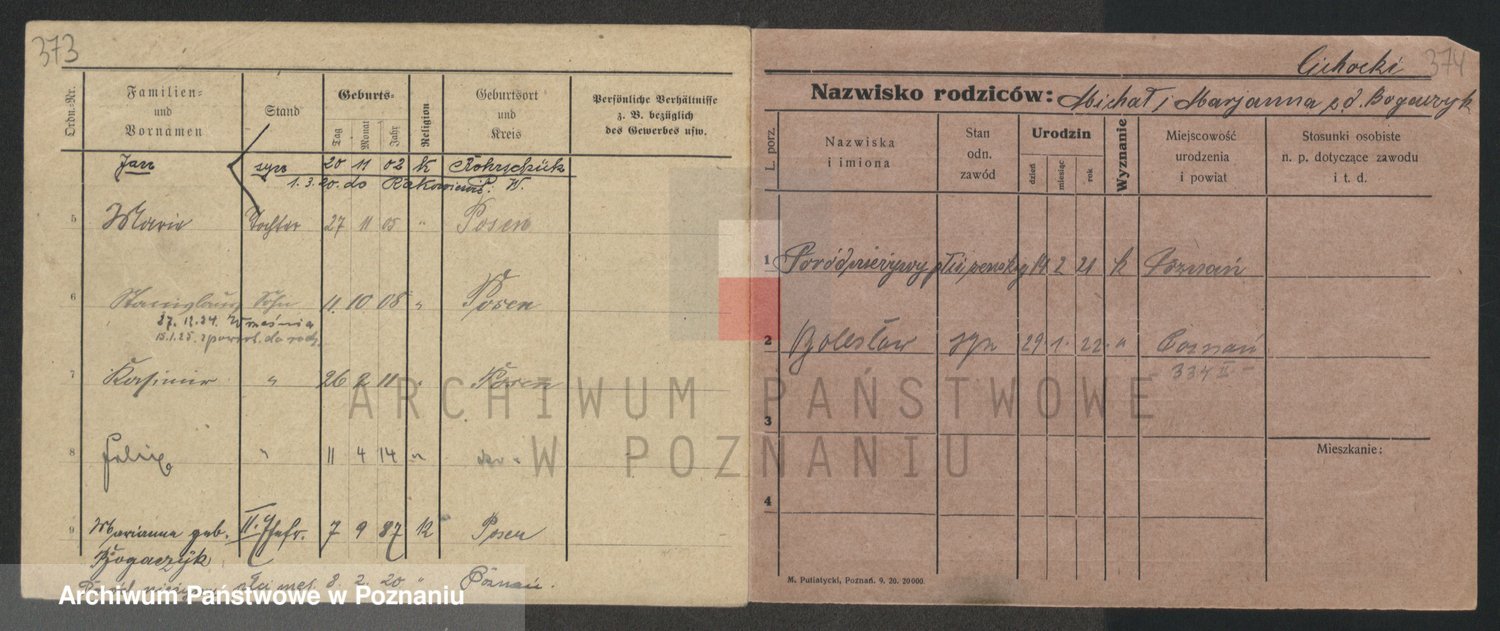 373
Ordn.-Nr.
Familien- und Vornamen
Stand
Geburts-
Tag
Monat
Jahr
Religion
Geburtsort und Kreis
Persönliche Verhältnisse z. B. bezüglich des Gewerbes usw.
Jan syn 20 11 02 k
1.3.20. do
5 Maria Tochter 27 11 05 " Posen
6 Stanislaus Sohn 11. 10 08 " Posen
27. 12. 24. Września
15.1.25. z powrot. do rodz.
7 Kasimir " 26 2 11 " Posen
8 Felix " 11 4 14 "
9 Marianna geb. II. Ehefr. 7 9 87 k Posen
Bogaczyk
8. 2. 20 " Poznań.
374
Cichocki
Nazwisko rodziców: Michał i Marjanna z d. Bogaczyk
L. porz.
Nazwiska i imiona
Stan odn. zawód
Urodzin
dzień
miesiąc
rok
Wyznanie
Miejscowość urodzenia i powiat
Stosunki osobiste n. p. dotyczące zawodu i t. d.
1 Poród nieżywy płci żeńskiej 14 2 21 k Poznań
2 Bolesław syn 29 1. 22. " Poznań
- 334 II -
3
4
Mieszkanie:
M. Putiatycki, Poznań. 9. 20. 20000.
ARCHIWUM PAŃSTWOWE
W POZNANIU
Archiwum Państwowe w Poznaniu